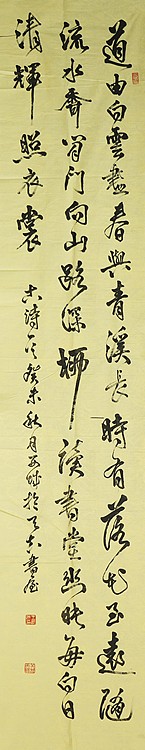 道由白雲盡春與青溪長時有落花至遠隨
流水香閒門向山路深柳讀書堂幽映每白日
清輝照衣裳 古詩一首癸未秋月於書屋